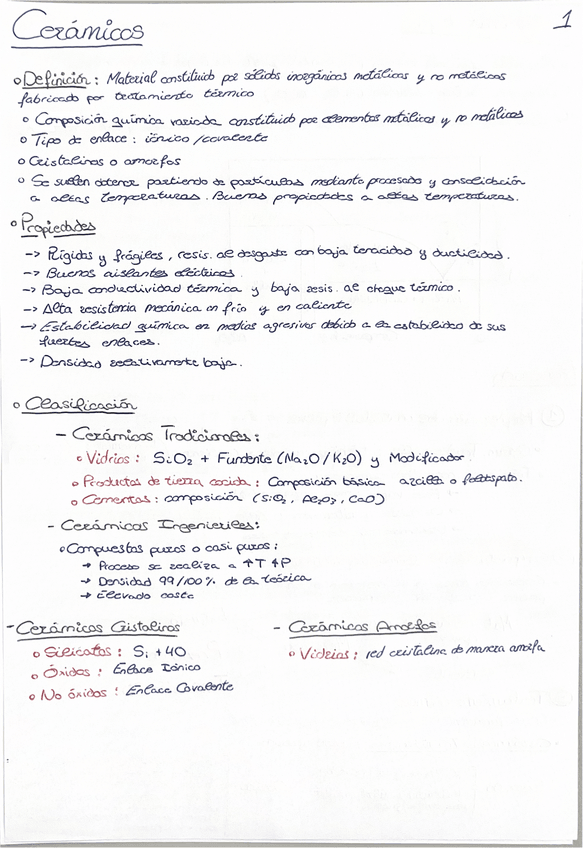 Cerámicos
1
o Definición: Material constituido por sólidos inorgánicos metálicos y no metálicos
fabricado por tratamiento térmico
o Composición química variada constituido por elementos metálicos y no metálicos
o Tipo de enlace: iónico/covalente
o Cristalinos o amorfos
o Se suelen obtener partiendo de partículas mediante procesado y consolidación
a altas temperaturas. Buenas propiedades a altas temperaturas.
o Propiedades
-> Rígidos y frágiles, resis. al desgaste con baja tenacidad y ductilidad.
-> Buenos aislantes eléctricos.
-> Baja conductividad térmica y baja resis. al choque térmico.
-> Alta resistencia mecánica en frío y en caliente
-> Estabilidad química en medios agresivos debido a la estabilidad de sus
fuertes enlaces.
-> Densidad relativamente baja.
o Clasificación
- Cerámicas Tradicionales:
o Vidrios: SiO₂ + Fundente (Na₂O/K₂O) y Modificador.
o Productos de tierra cocida: Composición básica arcilla o feldespato.
o Cementos: composición (SiO₂, Al₂O₃, CaO)
- Cerámicas Ingenieriles:
o Compuestas puros o casi puros:
→ Proceso se realiza a ↑T ↑P
→ Densidad 99/100% de la teórica
→ Elevado coste
- Cerámicas Cristalinos
o Silicatos: Si + 4O
o Óxidos: Enlace Iónico
o No óxidos: Enlace Covalente
- Cerámicas Amorfos
o Vidrios: red cristalina de manera amorfa